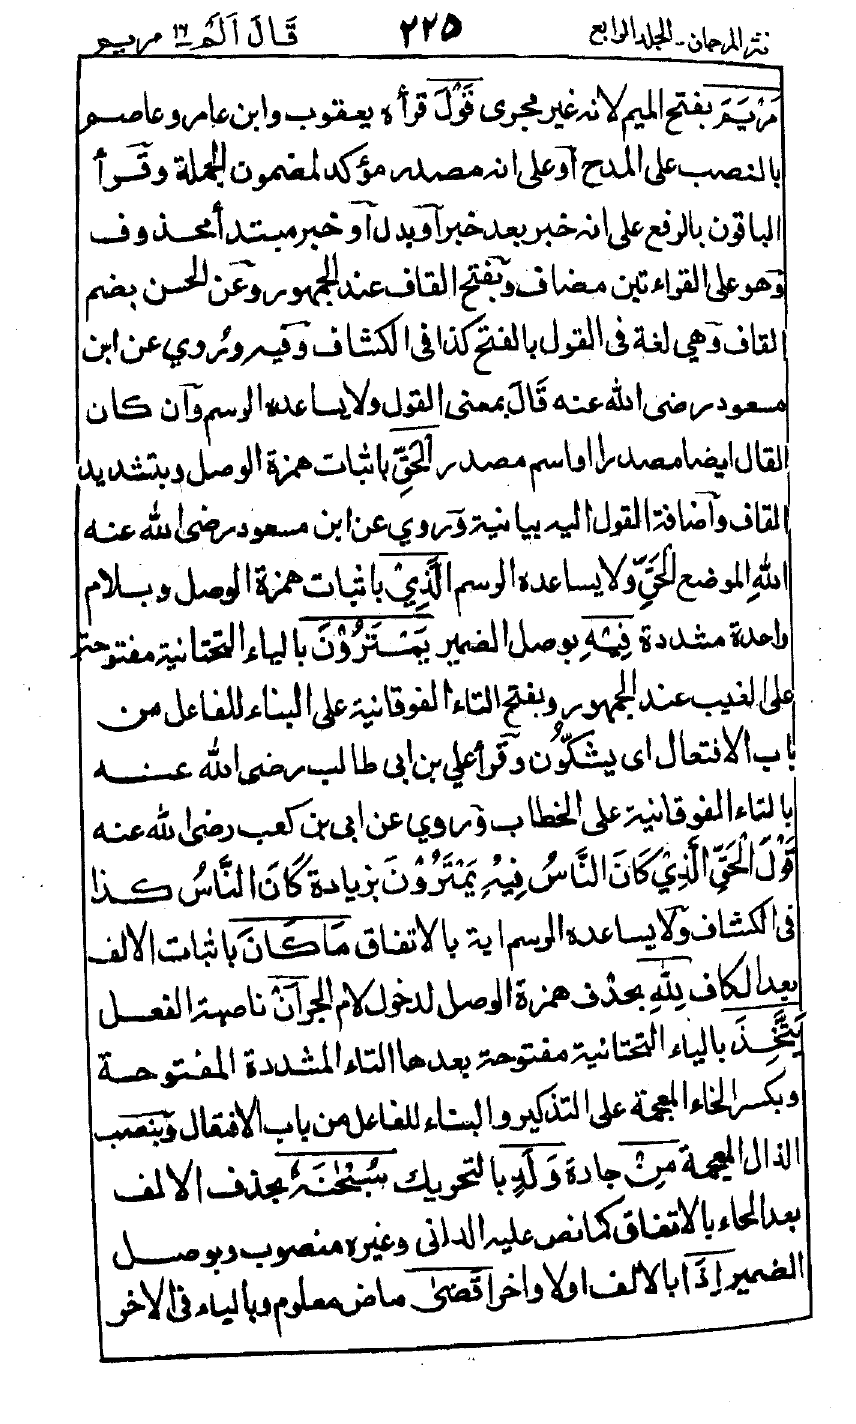 نثر المرجان - الجلد الرابع ٢٢٥ قَالَ اَلَمْ ١٦ مريم
مَرْيَمَ بفتح الميم لانه غير مجرى قَوْلَ قرأه يعقوب وابن عامر وعاصم
بالنصب على المدح اَو على انه مصدر مؤكد لمضمون الجملة وقَرأ
الباقون بالرفع على انه خبر بعد خبر اَو بدل اَو خبر مبتدأ محذوف
وَهو على القراءتين مضاف وبَفتح القاف عند الجمهور وعَن الحسن بضم
القاف وَهي لغة فى القول بالفتح كذا فى الكشاف وَفيه وَرُوي عن ابن
مسعود رضى الله عنه قَالَ بمعنى القول ولا يساعده الرسم وَاَن كان
القال ايضا مصدرا او اسم مصدر اَلْحَقِّ باثبات همزة الوصل وبتشديد
القاف وَاضافة القول اليه بيانية وَروي عن ابن مسعود رضى الله عنه
اللهِ الموضع الْحَقِّ وَلا يساعده الرسم الَّذِيْ باثبات همزة الوصل وبلام
واحدة مشددة فِيْهِ بوصل الضمير يَمْتَرُوْنَ بالياء التحتانية مفتوحة
على الغيب عند الجمهور وبفتح التاء الفوقانية على البناء للفاعل من
باب الافتعال اى يشكّون وَقرأ علي بن ابى طالب رضى الله عنه
بالتاء الفوقانية على الخطاب وَروي عن ابى بن كعب رضى الله عنه
قَوْلَ الْحَقِّ الَّذِيْ كَانَ النَّاسُ فِيْهِ يَمْتَرُوْنَ بزيادة كَانَ النَّاسُ كذا
فى الكشاف وَلا يساعده الرسم اية بالاتفاق مَا كَانَ باثبات الالف
بعد الكاف لِلّٰهِ بحذف همزة الوصل لدخول لام الجر اَنْ ناصبة الفعل
يَتَّخِذَ بالياء التحتانية مفتوحة بعدها التاء المشددة المفتوحة
وبكسر الخاء المعجمة على التذكير والبناء للفاعل من باب الافتعال وَبنصب
الذال المعجمة مِنْ جادة وَلَدٍ بالتحريك سُبْحٰنَهٗ بحذف الالف
بعد الحاء بالاتفاق كما نص عليه الدانى وغيره منصوب وبوصل
الضمير اِذَا بالالف اولا واخرا قَضٰى ماض معلوم وبالياء فى الاخر